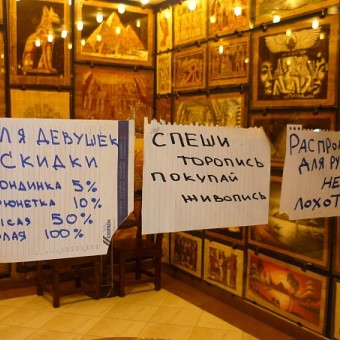 ЛЯ ДЕВУШЕК
СКИДКИ
ОНДИНКА 5%
РЮНЕТКА 10%
ЫСАЯ 50%
ОЛАЯ 100%
СПЕШИ
ТОРОПИСЬ
ПОКУПАЙ
ЖИВОПИСЬ
РАСПРО
ДЛЯ РУ
НЕ
ЛОХОТ